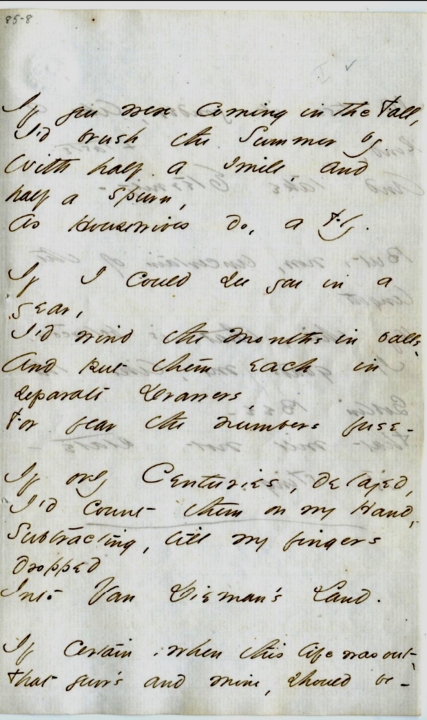 85-8
If you were coming in the Fall,
I'd brush the Summer by
With half a smile, and
half a spurn,
As Housewives do, a Fly.
If I could see you in a
year,
I'd wind the months in balls
And put them each in
separate Drawers
For fear the numbers fuse -
If only Centuries, delayed,
I'd count them on my Hand,
Subtracting, till my fingers
dropped
Into Van Dieman's Land.
If certain, when this life was out -
That your's and mine, should be -